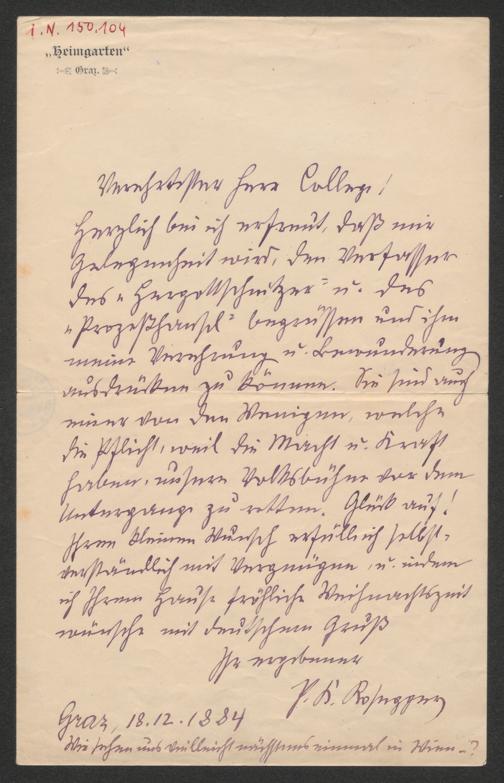 I. N. 150.104
„Heimgarten“
Graz.
Verehrtester Herr College!
Herzlich bin ich erfreut, daß mir
Gelegenheit wird, den Verfasser
des „Hergottschnitzer“ u. des
„Prozeßhansl“ begrüssen und ihm
meine Verehrung u. Bewunderung
ausdrücken zu können. Sie sind auch
einer von den Wenigen, welche
die Pflicht, weil die Macht u. Kraft
haben, unsere Volksbühne vor dem
Untergange zu retten. Glück auf!
Ihren kleinen Wunsch erfülle ich selbst-
verständlich mit Vergnügen, u. indem
ich Ihrem Hause fröhliche Weihnachtszeit
wünsche mit deutschem Gruß
Ihr ergebener
P. K. Rosegger
Graz, 18.12.1884
Wir sehen uns vielleicht nächstens einmal in Wien –?